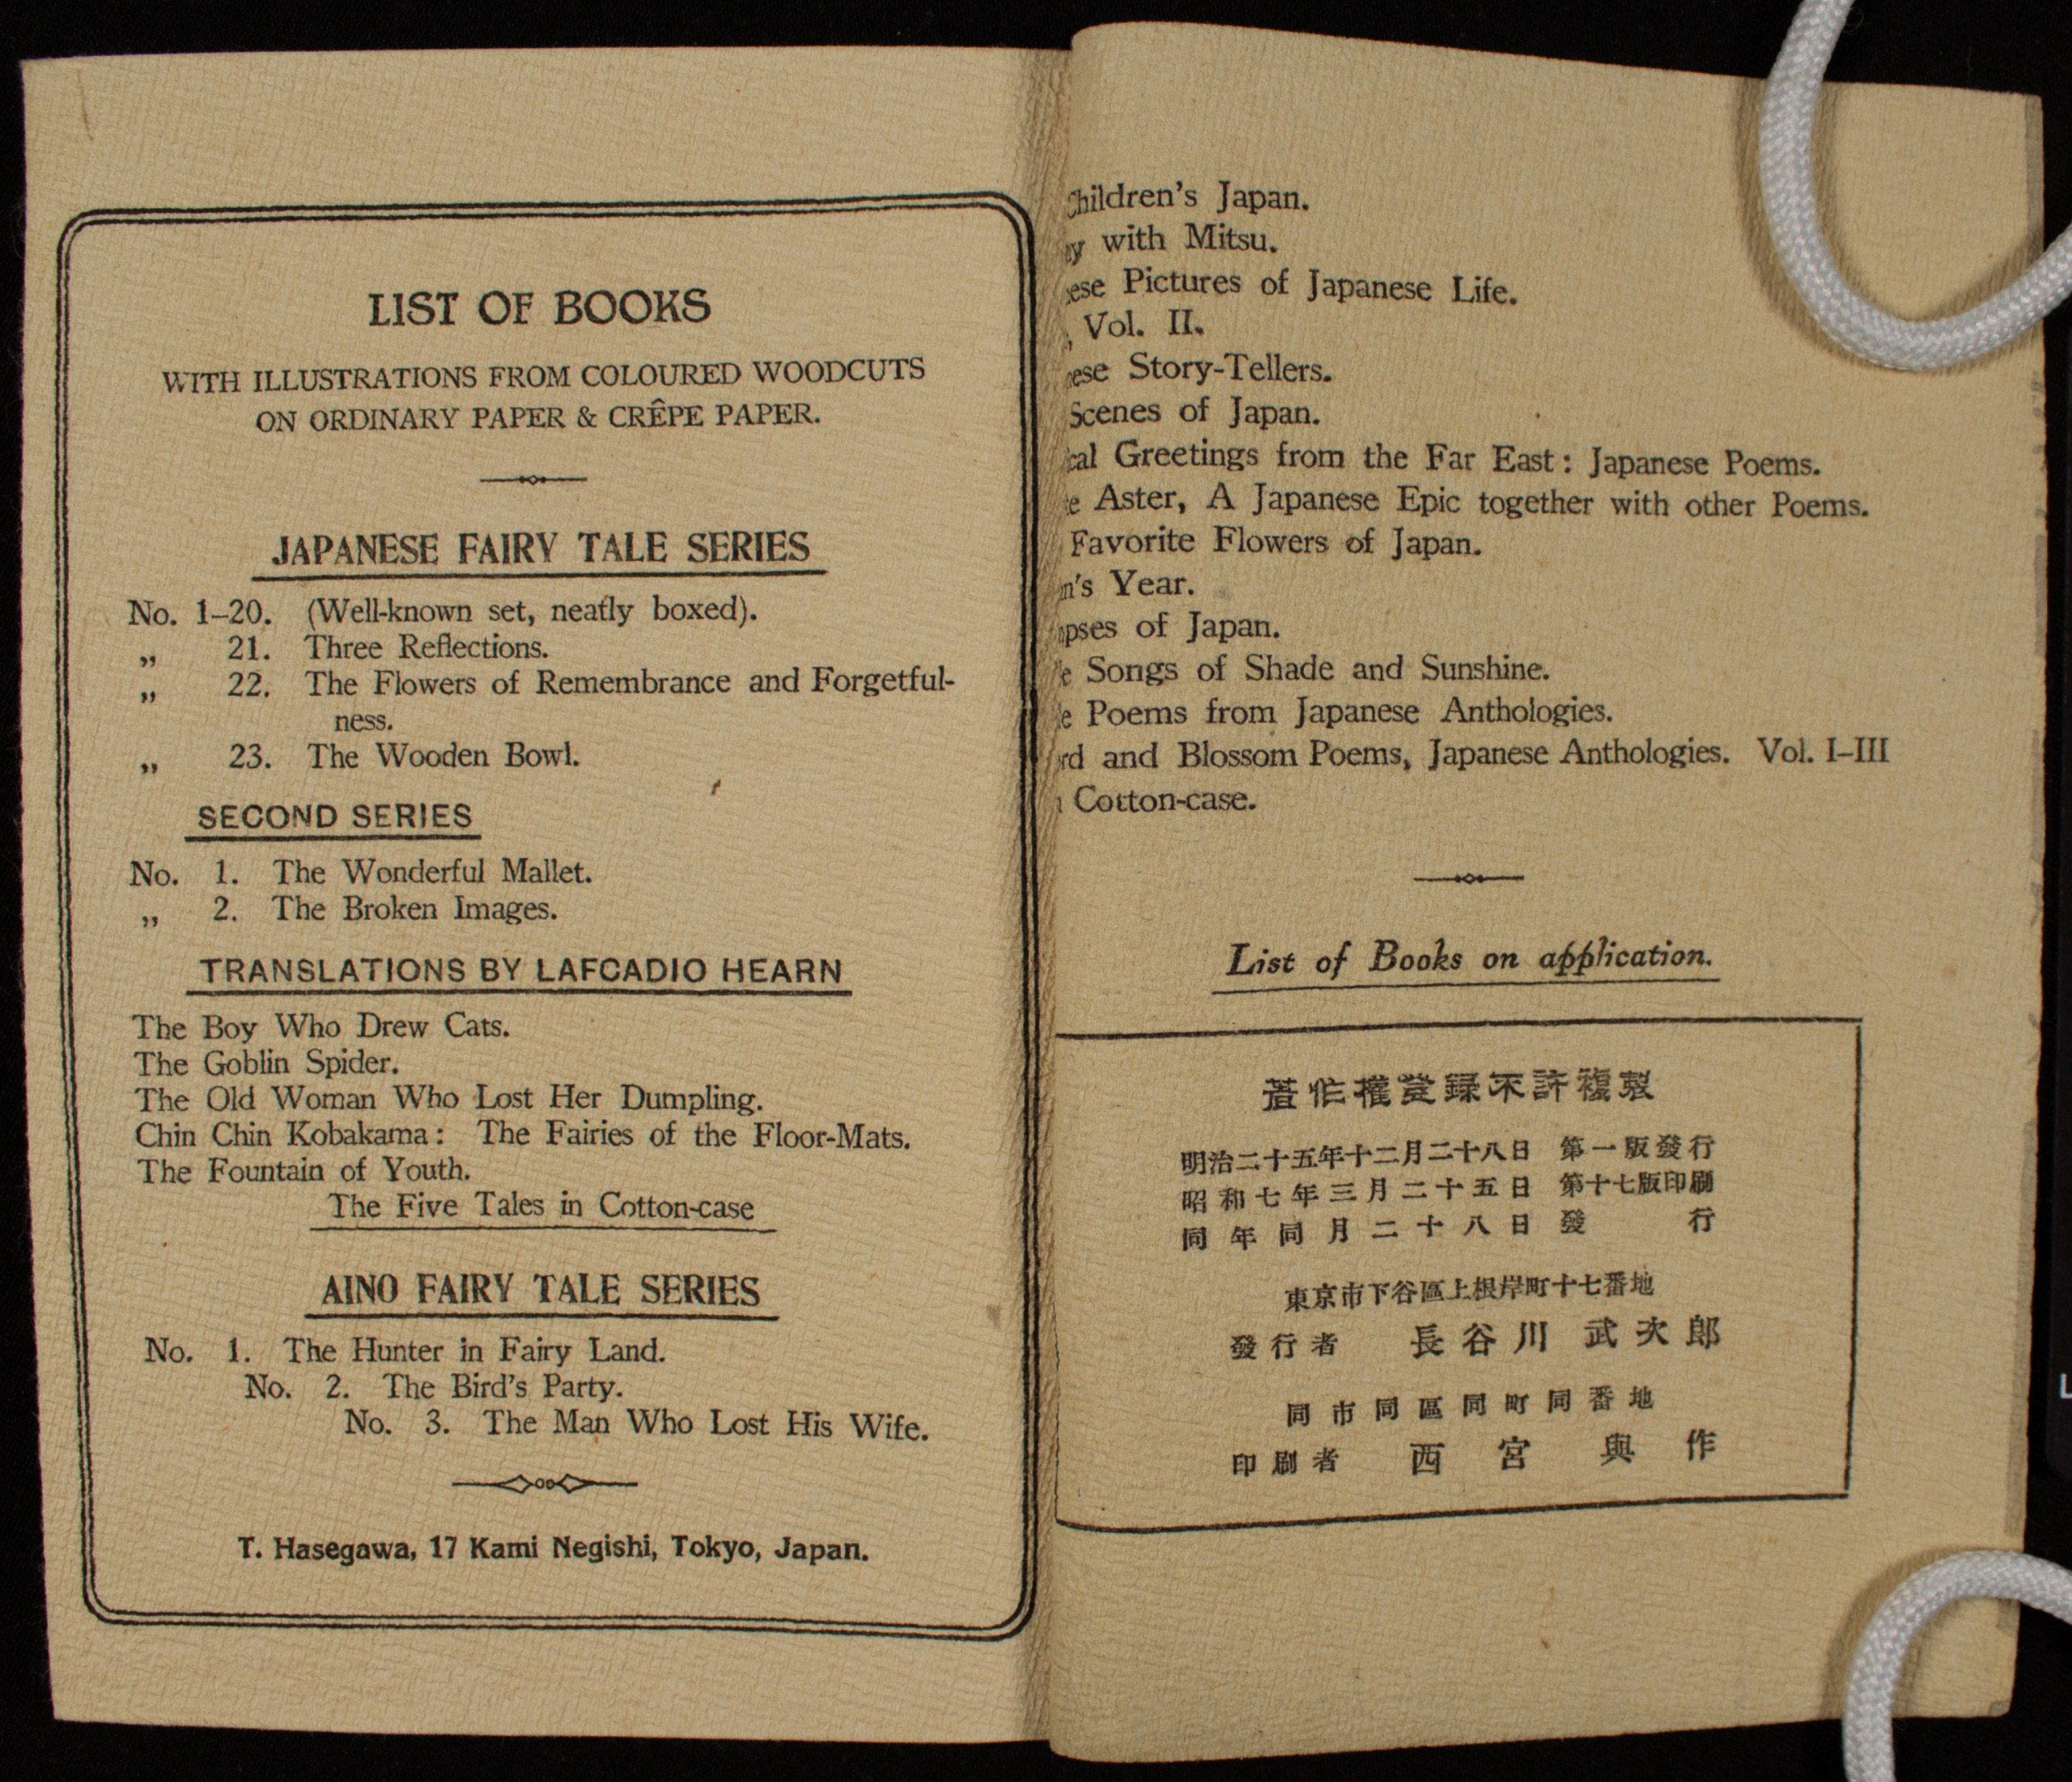 LIST OF BOOKS
WITH ILLUSTRATIONS FROM COLOURED WOODCUTS
ON ORDINARY PAPER & CRÊPE PAPER.
JAPANESE FAIRY TALE SERIES
No. 1–20. (Well-known set, neatly boxed).
„ 21. Three Reflections.
„ 22. The Flowers of Remembrance and Forgetful-
ness.
„ 23. The Wooden Bowl.
SECOND SERIES
No. 1. The Wonderful Mallet.
„ 2. The Broken Images.
TRANSLATIONS BY LAFCADIO HEARN
The Boy Who Drew Cats.
The Goblin Spider.
The Old Woman Who Lost Her Dumpling.
Chin Chin Kobakama: The Fairies of the Floor-Mats.
The Fountain of Youth.
The Five Tales in Cotton-case
AINO FAIRY TALE SERIES
No. 1. The Hunter in Fairy Land.
No. 2. The Bird's Party.
No. 3. The Man Who Lost His Wife.
T. Hasegawa, 17 Kami Negishi, Tokyo, Japan.
Children's Japan.
with Mitsu.
Pictures of Japanese Life.
Vol. II.
Story-Tellers.
Scenes of Japan.
Greetings from the Far East: Japanese Poems.
Aster, A Japanese Epic together with other Poems.
Favorite Flowers of Japan.
Year.
of Japan.
Songs of Shade and Sunshine.
Poems from Japanese Anthologies.
and Blossom Poems, Japanese Anthologies. Vol. I–III
Cotton-case.
List of Books on application.
著作權登録不許複製
明治二十五年十二月二十八日 第一版發行
昭和七年三月二十五日 第十七版印刷
同年同月二十八日 發行
東京市下谷區上根岸町十七番地
發行者 長谷川武次郎
同市同區同町同番地
印刷者 西宮與作